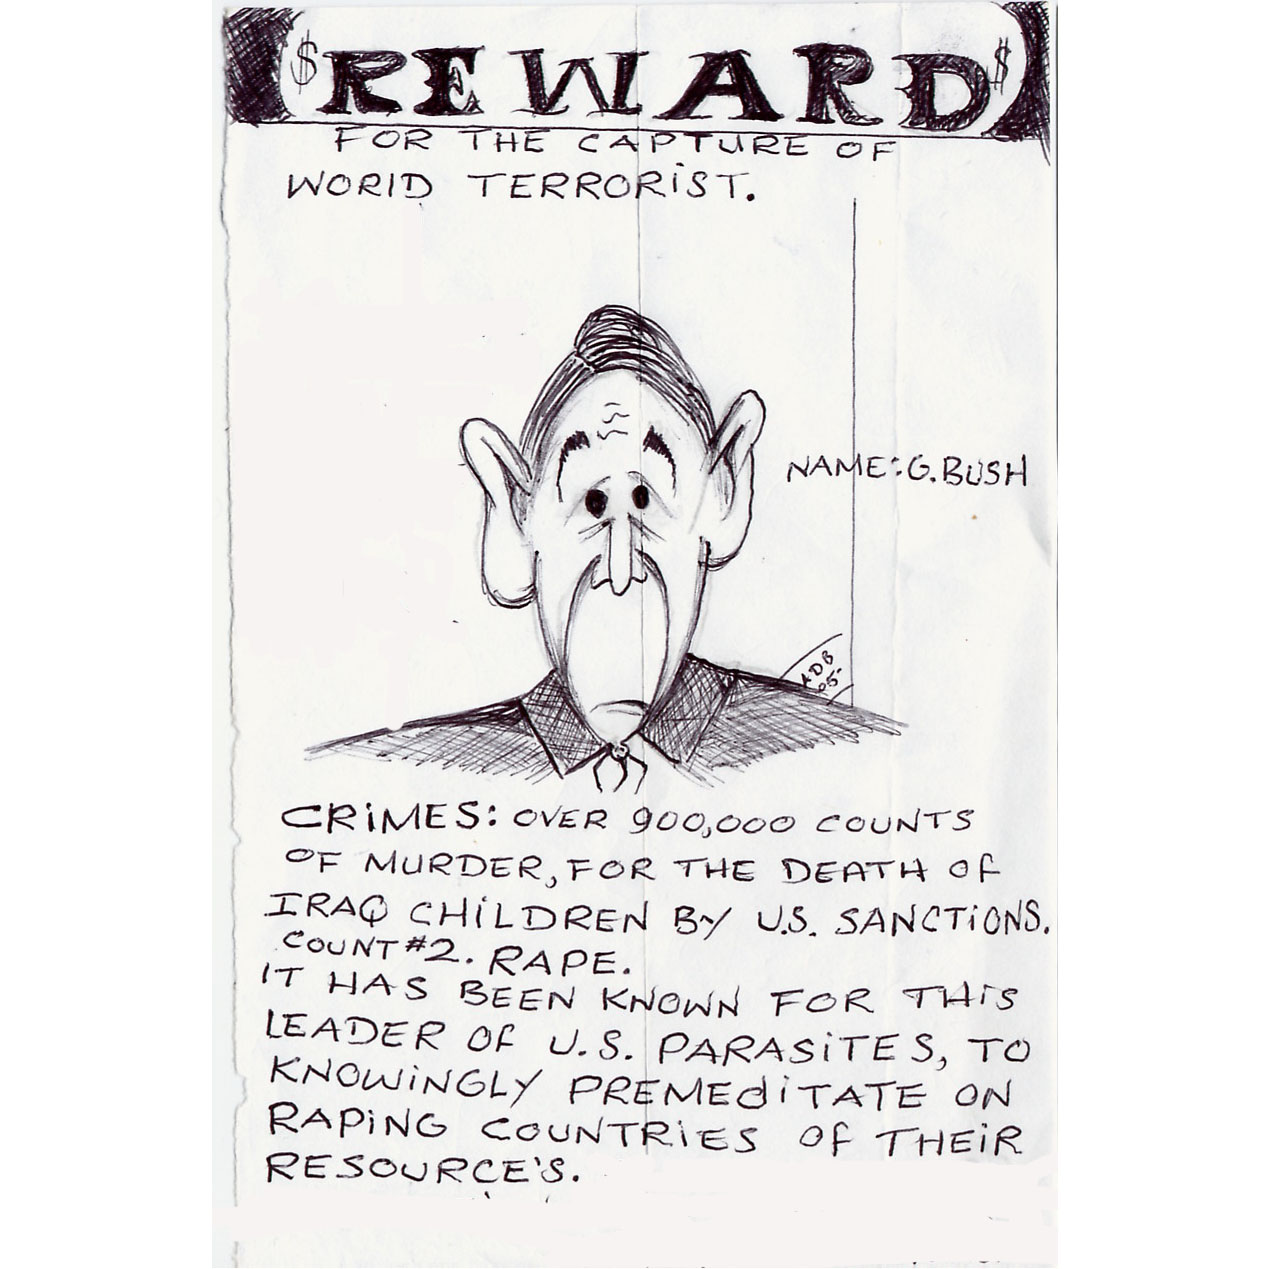 $ REWARD $
FOR THE CAPTURE OF
WORlD TERRORiST.
NAME: G. BUSH
ADB
05-
CRiMES: OVER 900,000 COUNTS
OF MURDER, FOR THE DEATH OF
IRAQ CHiLDREN BY U.S. SANCTiONS.
COUNT #2. RAPE.
IT HAS BEEN KNOWN FOR THiS
LEADER OF U.S. PARASiTES, TO
KNOWiNGLY PREMEdiTATE ON
RAPiNG COUNTRiES OF THEiR
RESOURCE'S.